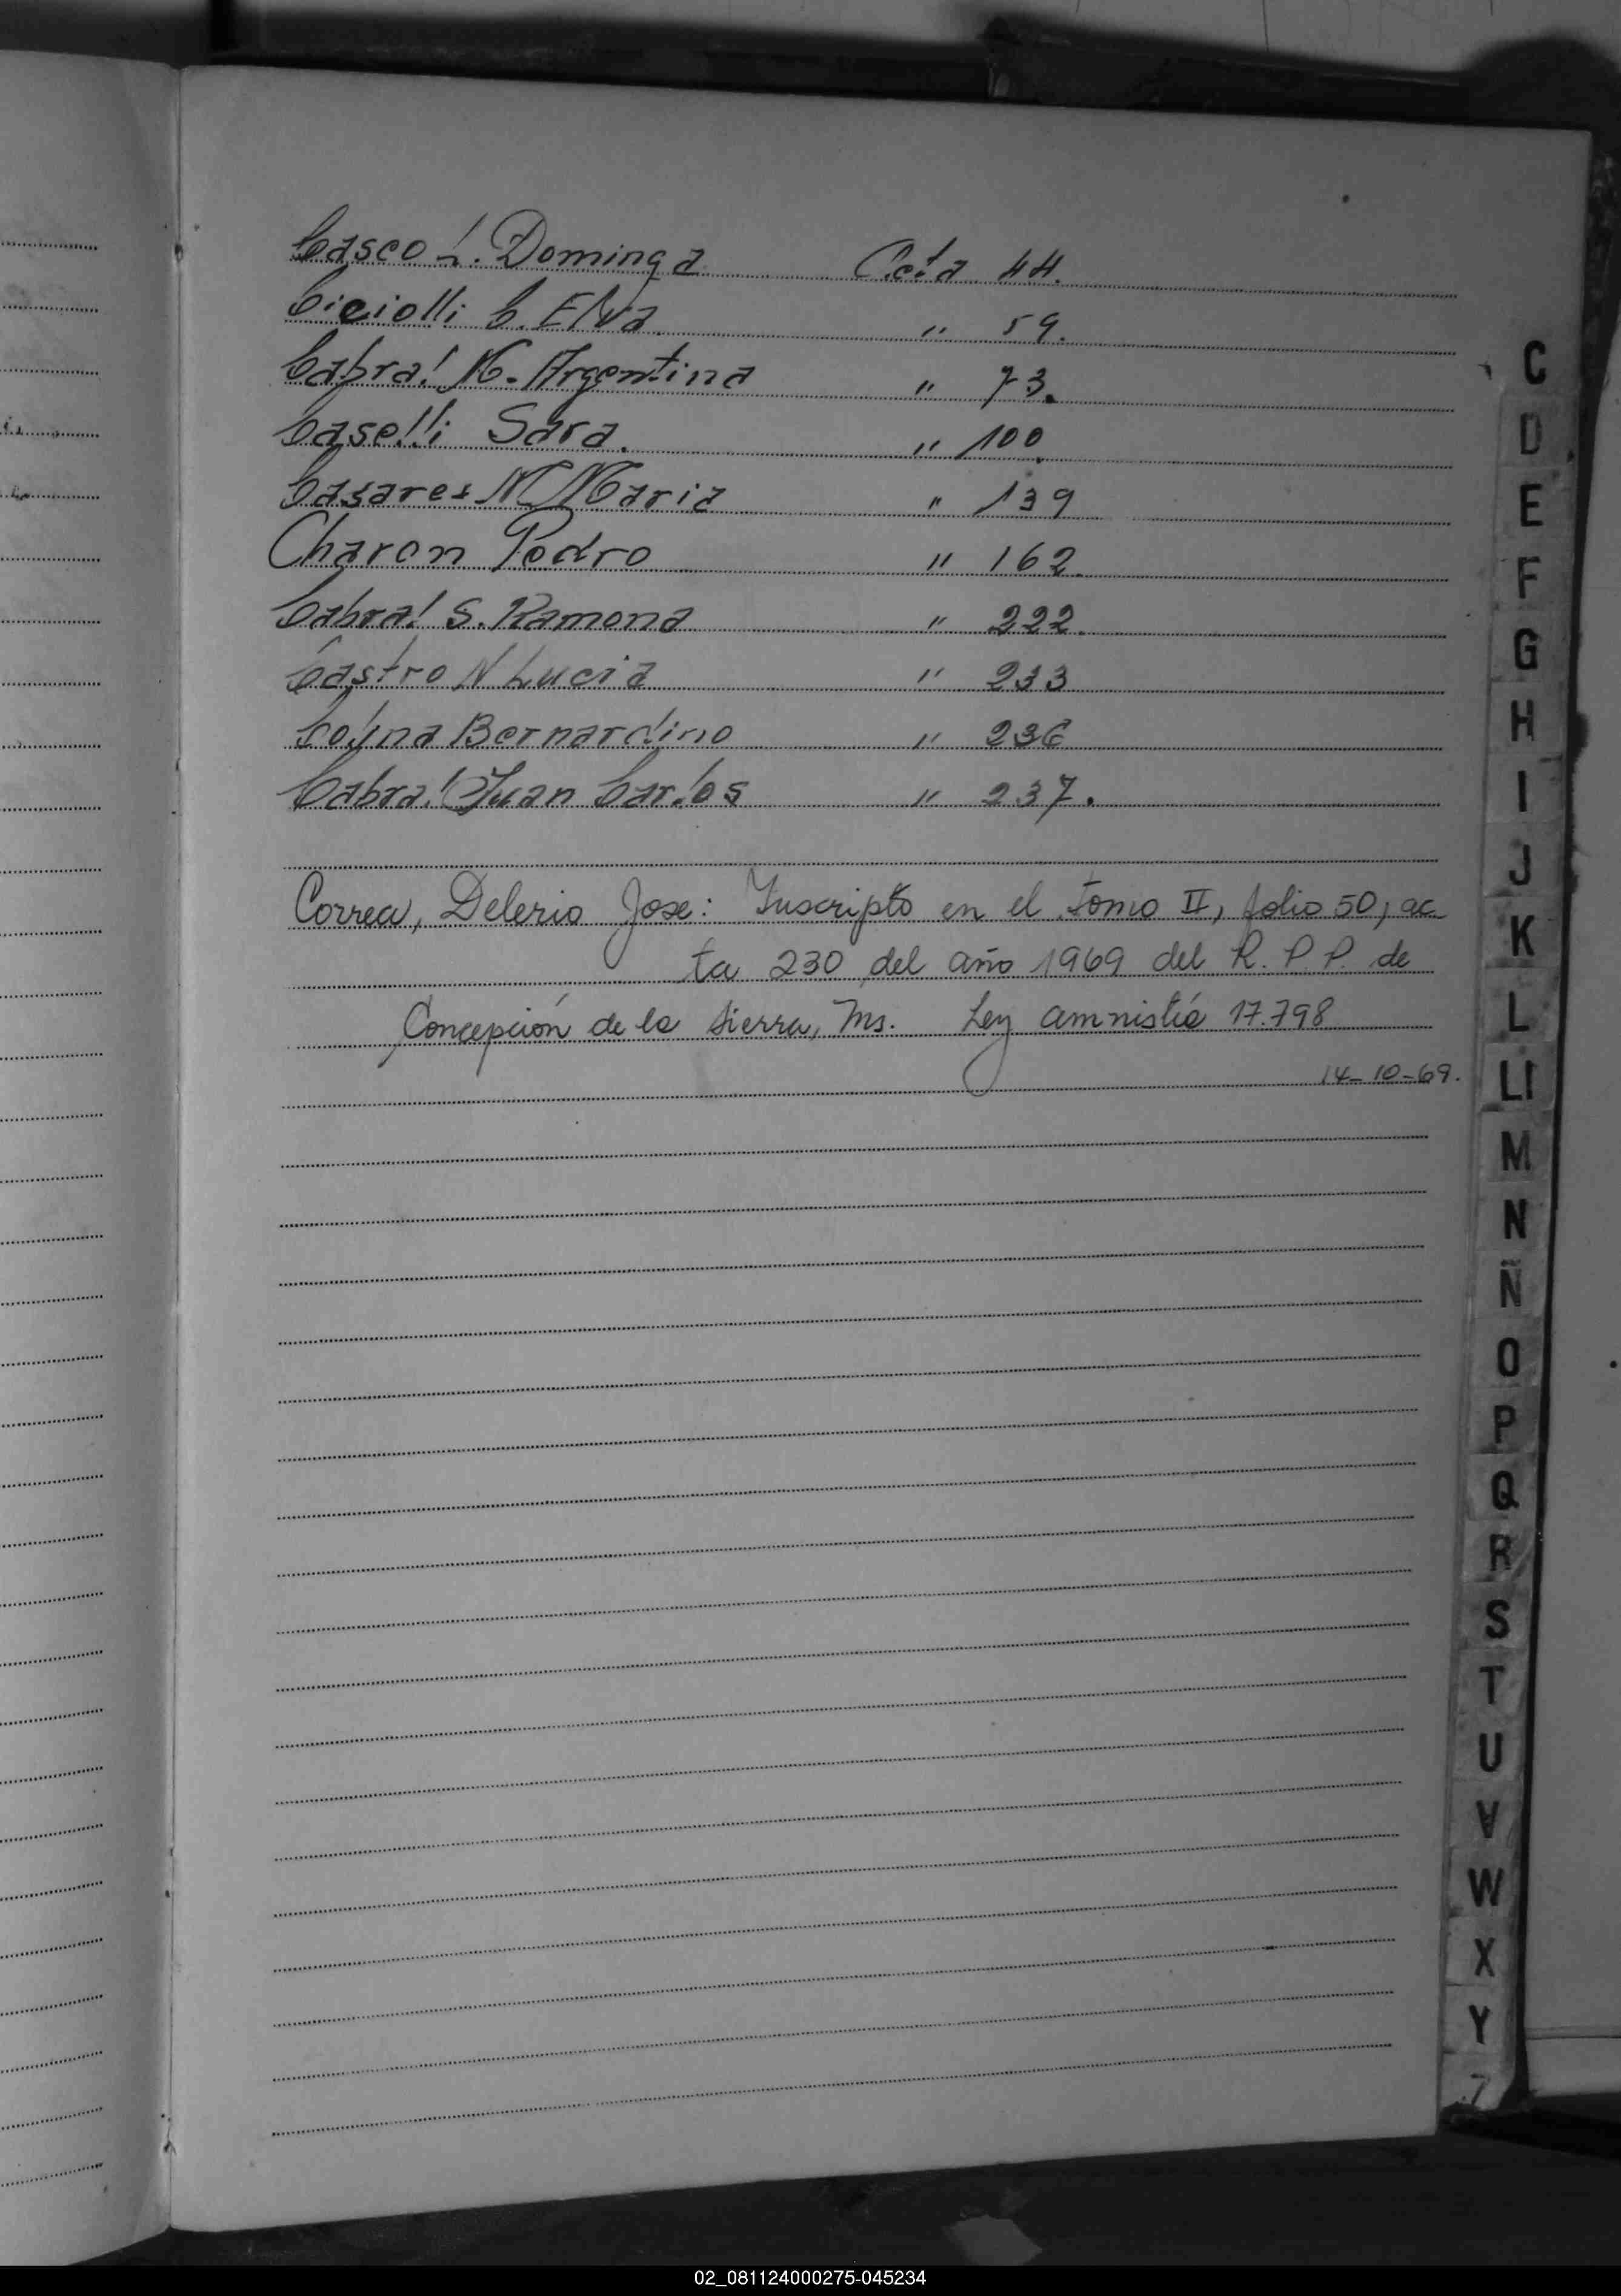 Casco L. Dominga Acta 44.
Ciciolli C. Elva " 59.
Cabral M. Argentina " 73.
Caselli Sara. " 100.
Casares M Maria " 139
Charon Pedro " 162.
Cabral S. Ramona " 222.
Castro N Lucia " 233
Colina Bernardino " 236
Cabral Juan Carlos " 237.
Correa, Delerio Jose: Inscripto en el tomo II, folio 50, ac
ta 230 del año 1969 del R. P. P. de
Concepción de la Sierra, Ms. Ley amnistía 17.798
14-10-69.
C
D
E
F
G
H
I
J
K
L
Ll
M
N
Ñ
O
P
Q
R
S
T
U
V
W
X
Y
Z
02_081124000275-045234